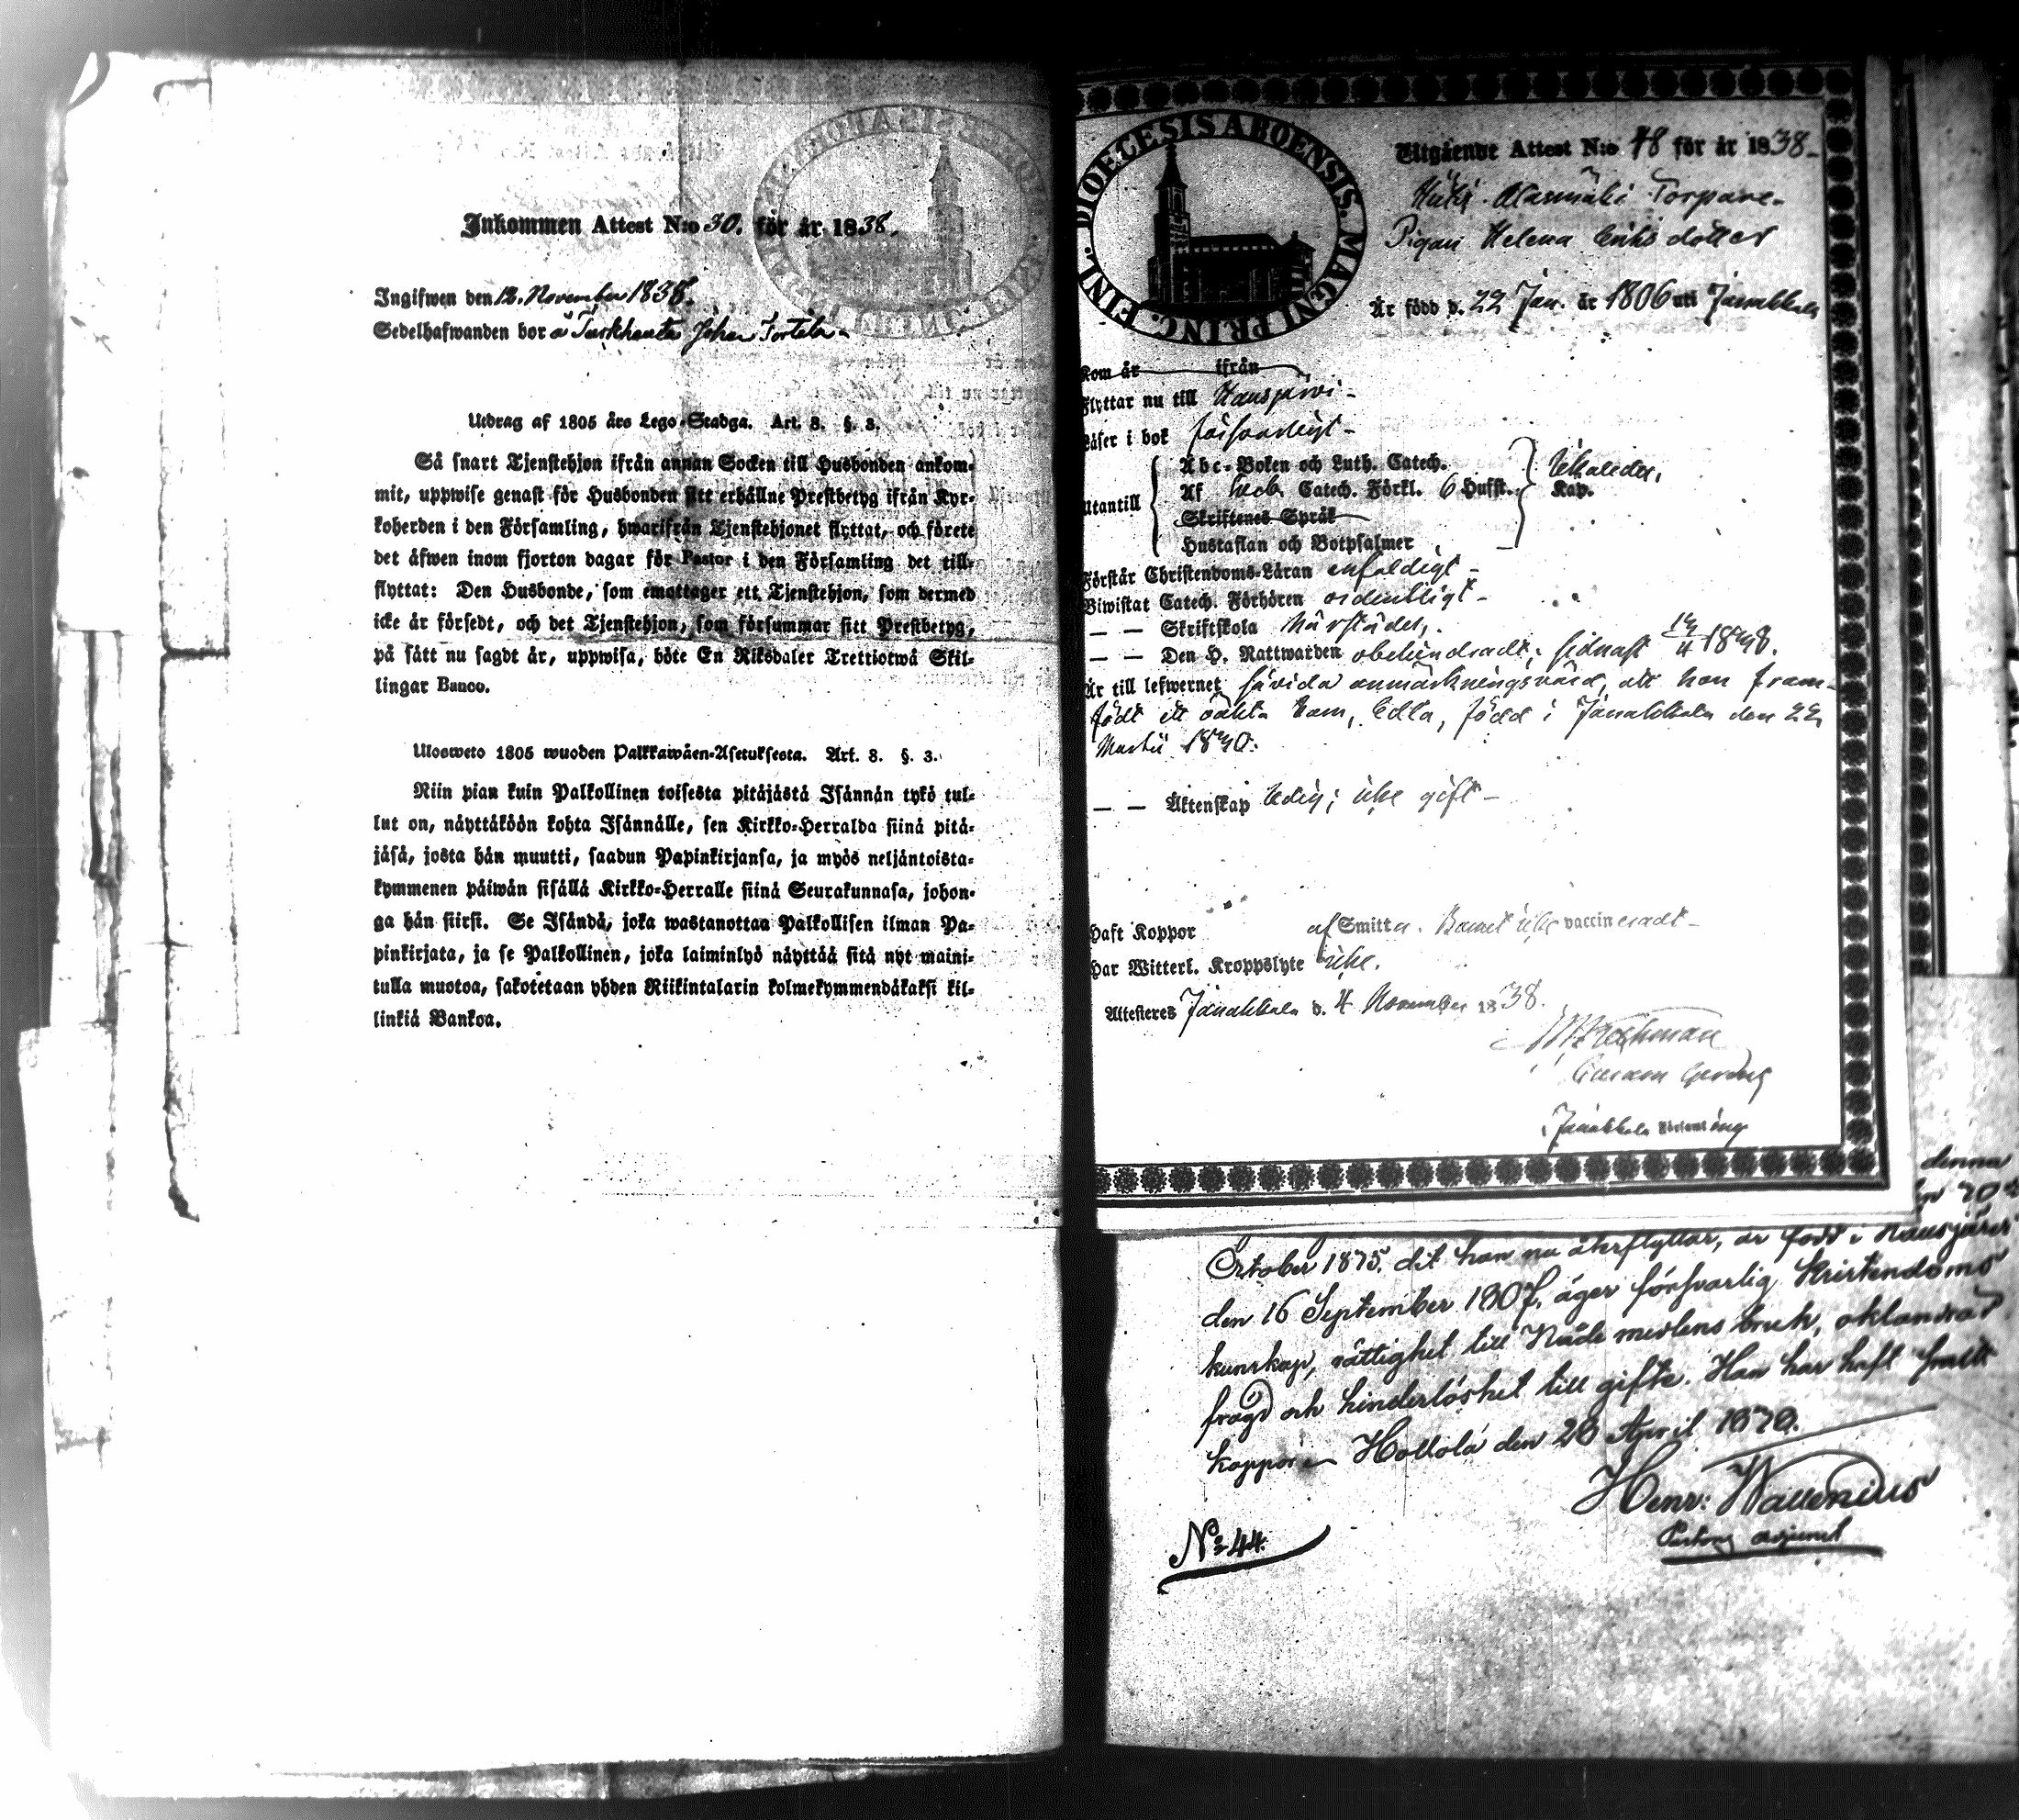 Inkommen Attest N:o 30. för år 1838.
Ingifwen den 12. November 1838.
Sedelhafwanden bor å Turkhauta Johan
Utdrag af 1805 års Lego-Stadga. Art. 8. §. 3.
Så snart Tjenstehjon ifrån annan Socken till Husbonden ankom-
mit, uppwise genast för Husbonden sitt erhållne Prestbetyg ifrån Kyr-
koherden i den Församling, hwarifrån Tjenstehjonet flyttat, och förete
det äfwen inom fjorton dagar för Pastor i den Församling det till-
flyttat: Den Husbonde, som emottager ett Tjenstehjon, som dermed
icke är försedt, och det Tjenstehjon, som försummar sitt Prestbetyg,
på sätt nu sagdt är, uppwisa, böte En Riksdaler Trettiotwå Skil-
lingar Banco.
Ulosweto 1805 wuoden Palkkawäen-Asetuksesta. Art. 8. §. 3.
Niin pian kuin Palkollinen toisesta pitäjästä Isännän tykö tul-
lut on, näyttäköön kohta Isännälle, sen Kirkko-Herralda siinä pitä-
jäsä, josta hän muutti, saadun Papinkirjansa, ja myös neljäntoista-
kymmenen päiwän sisällä Kirkko-Herralle siinä Seurakunnasa, johon-
ga hän siirsi. Se Isändä, joka wastanottaa Palkollisen ilman Pa-
pinkirjata, ja se Palkollinen, joka laiminlyö näyttää sitä nyt maini-
tulla muotoa, sakotetaan yhden Riikintalarin kolmekymmendäkaksi kil-
linkiä Bankoa.
DIOECESIS ABOENSIS. MAGNI PRINC. FINL.
Utgående Attest N:o 48 för år 1838
Alasmäki Torpare
Pigan Helena Eriksdotter
Är född d. 22 Jan. år 1806 uti Janakkala
Kom år ifrån
Flyttar nu till Hausjärvi
Läser i bok försvarligt
Abc-Boken och Luth. Catech.
Af Catech. Förkl. 6 Hufst. Kap.
Utantill
Skriftenes Språk
Hustaflan och Botpsalmer
Förstår Christendoms-Läran enfaldigt
Biwistat Catech. Förhören ordentligt
— — Skriftskola
— — Den H. Nattwarden obehindradt, sednast
Är till lefwernet såvida anmärkningsvärd, att hon fram-
födt ett oäkta barn, Edla, född i Janakkala den 22
Martii
— — Äktenskap ledig; icke gift
Haft Koppor af Smitta. Barnet icke vaccineradt
Har Witterl. Kroppslyte icke.
Attesteres Janakkala d. 4 November 1838.
i Janakkala Församling
denna
October 1875. dit han nu återflyttar, är född i Hausjärvi
den 16 September 1807. äger försvarlig kristendoms
kunskap, rättighet till Nådemedlens bruk, oklandrad
frägd och hinderlöshet till gifte. Han har haft
koppor. Hollola den 28 April 1878.
Henr: Wallenius
Pastors adjunct
No 44.